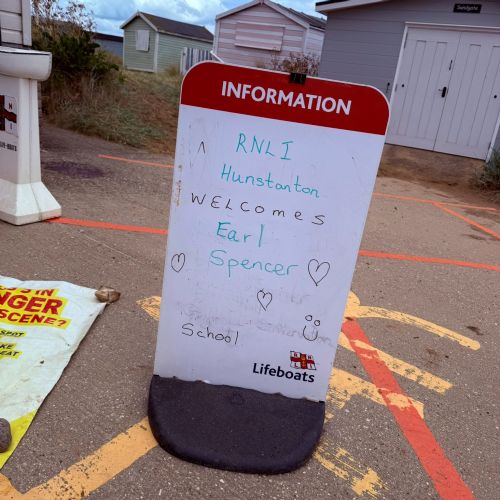 Sandgate
INFORMATION
RNLI
Hunstanton
WELComes
Earl
Spencer
School
Lifeboats
NGER
SCENE?
SPOT
KE
EAT